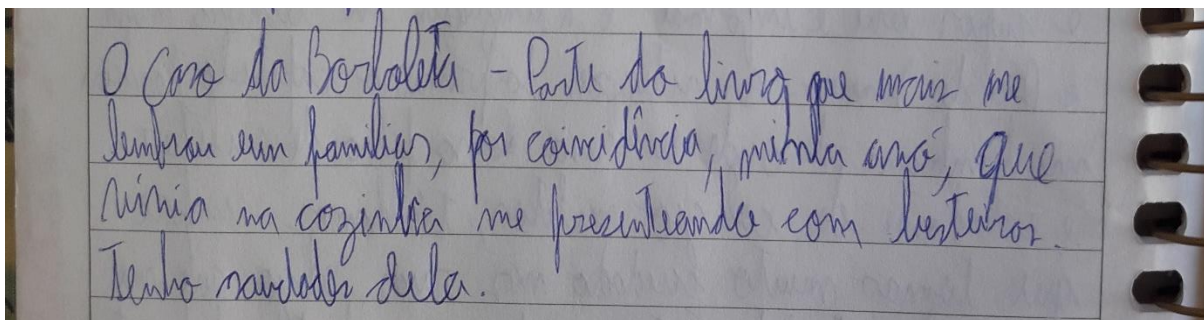 O Caso da Borboleta - Parte do livro que mais me
lembrou um familiar, por coincidência, minha avó, que
vivia na cozinha me presenteando com besteiras.
Tenho saudades dela.